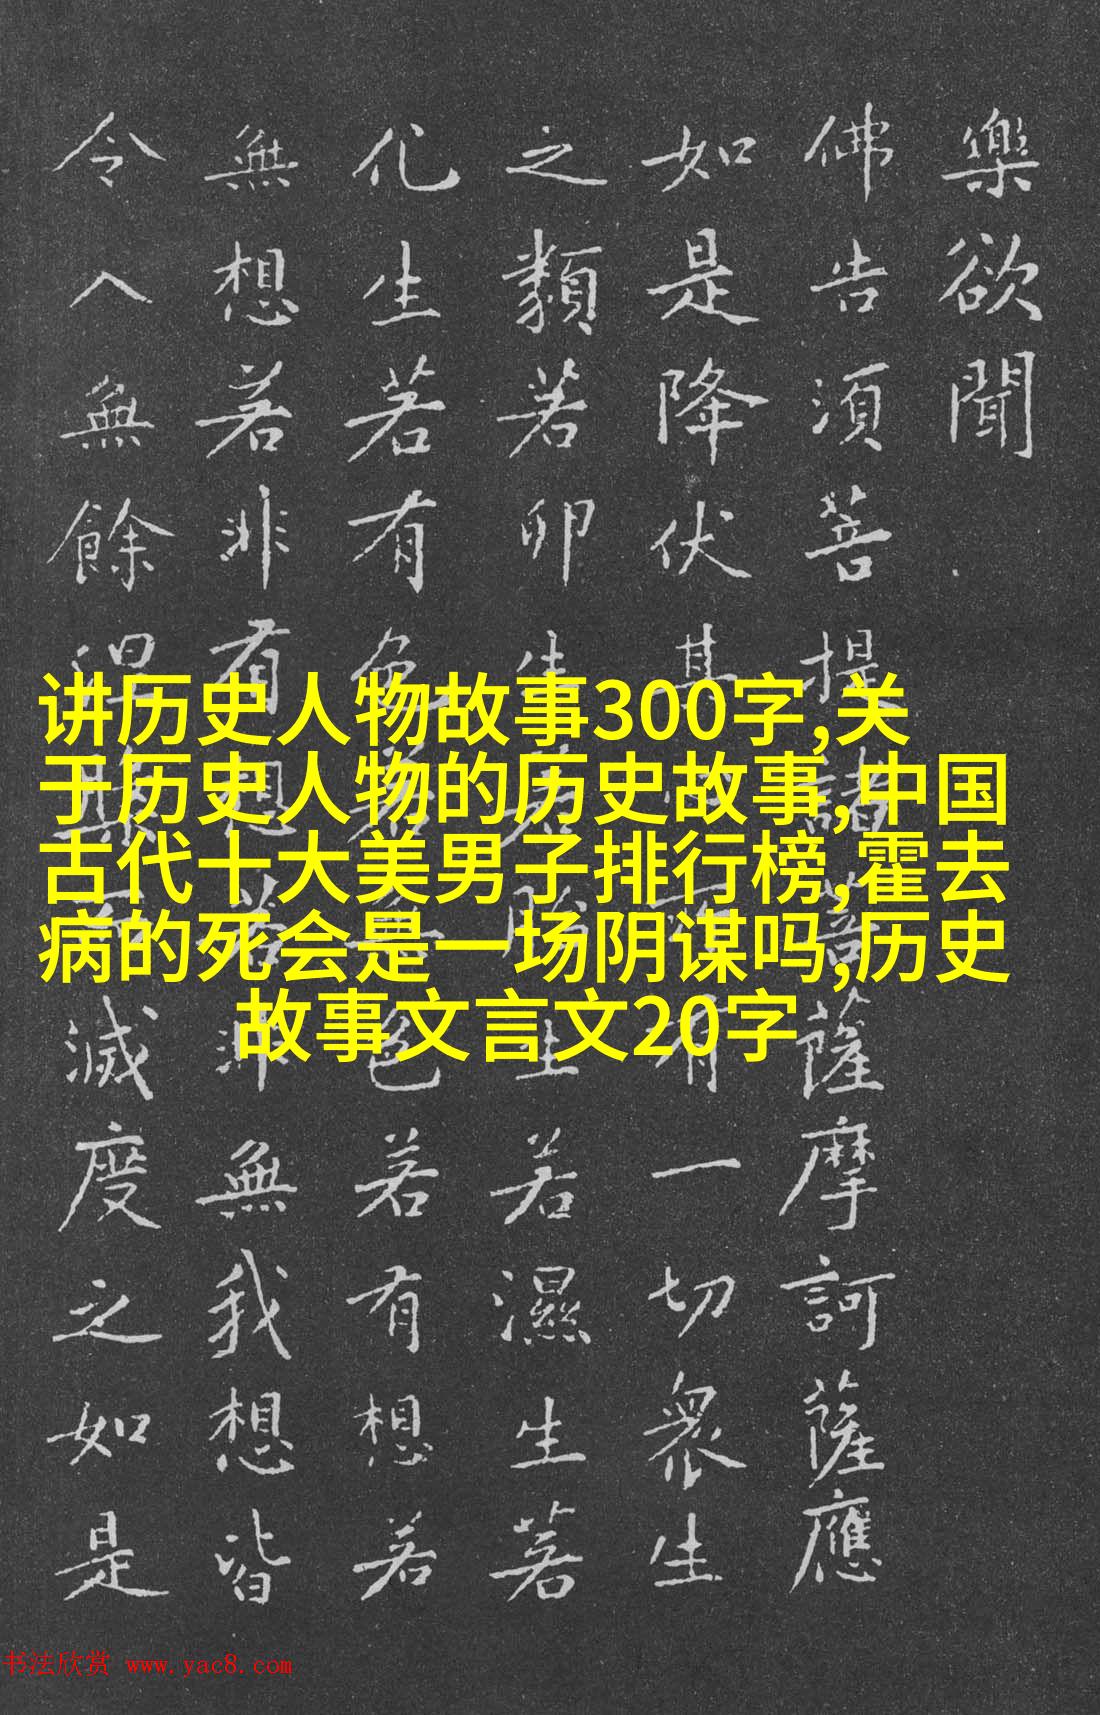 樂欲聞
佛告須菩提諸菩薩摩訶薩應
如是降伏其有一切衆生
之類若卵生若胎生若濕生若
化生若有色若無色若有想若
無想若非有想若非無我想皆
令入無餘涅槃滅度之如是
讲历史人物故事300字,关
于历史人物的历史故事,中国
古代十大美男子排行榜,霍去
病的死会是一场阴谋吗,历史
故事文言文20字
书法欣赏 www.yac8.com